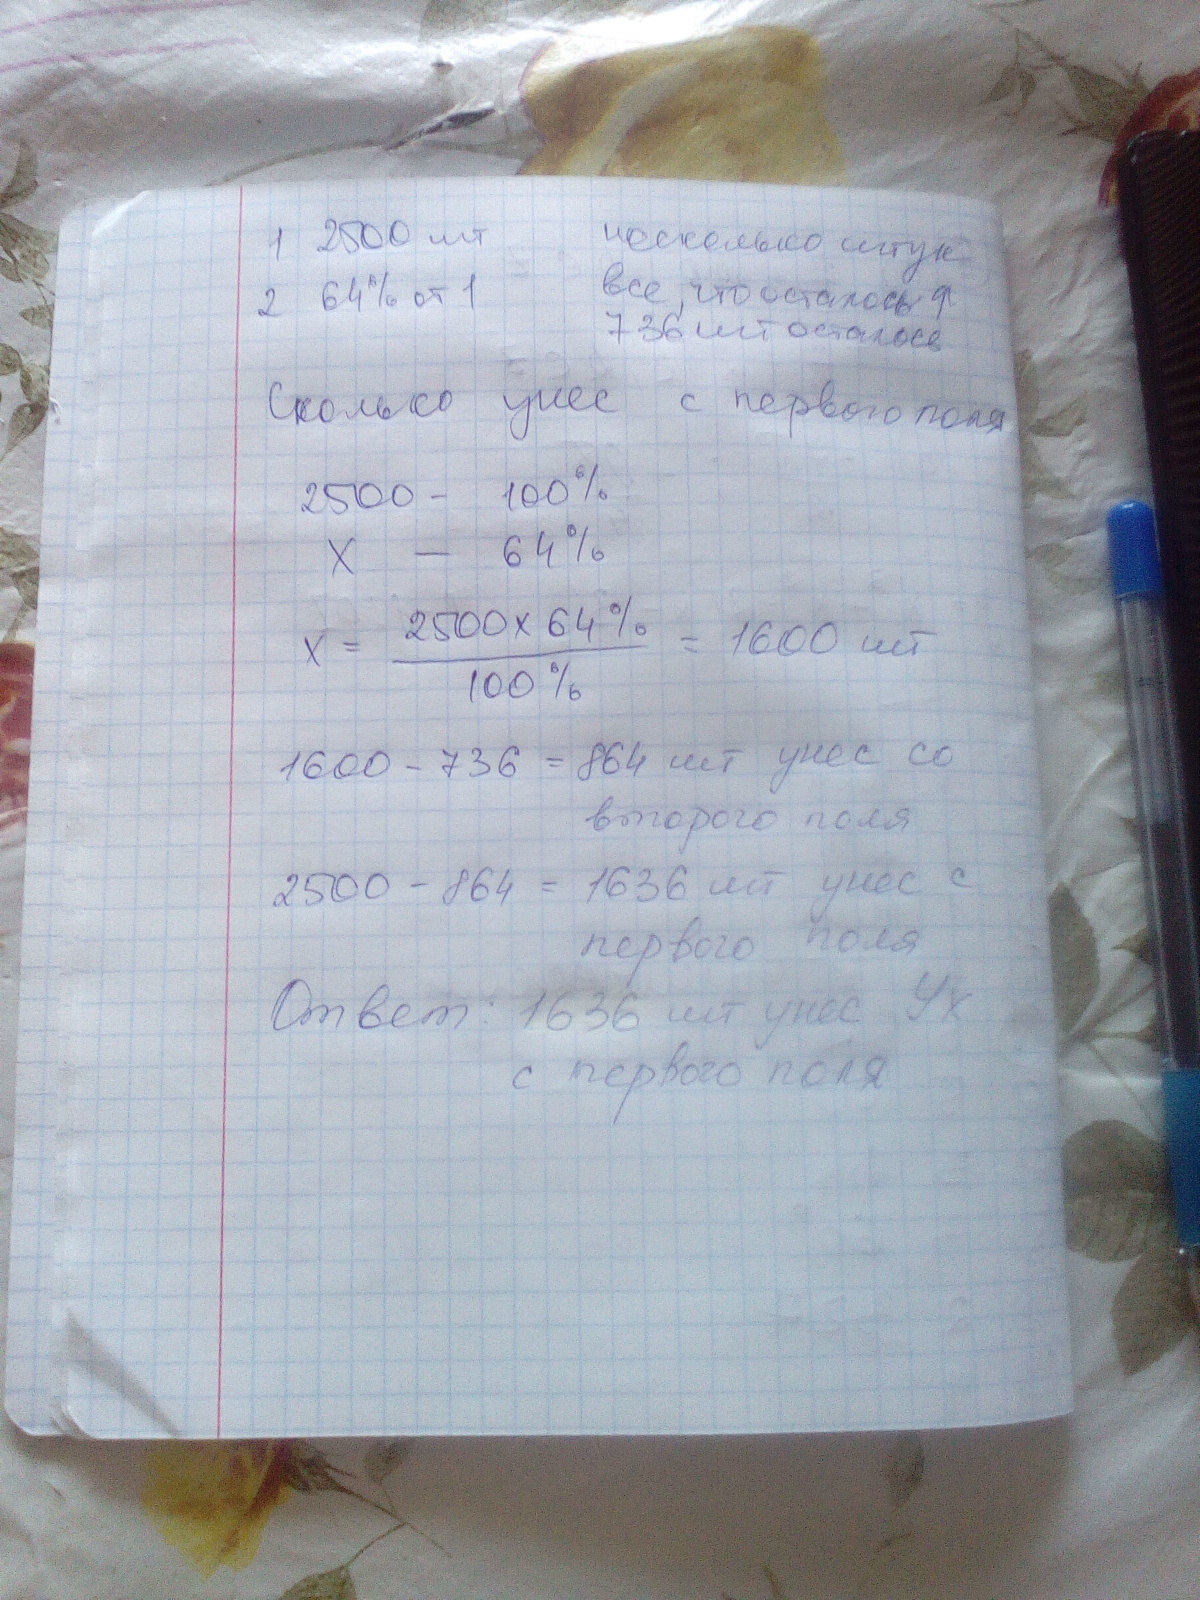 1 2500 шт несколько штук
2 64% от 1 все, что осталось
736 шт осталось
Сколько унес с первого поля
2500 - 100%
X — 64%
X = 2500 x 64% / 100% = 1600 шт
1600 - 736 = 864 шт унес со
второго поля
2500 - 864 = 1636 шт унес с
первого поля
Ответ: 1636 шт унес Ух
с первого поля